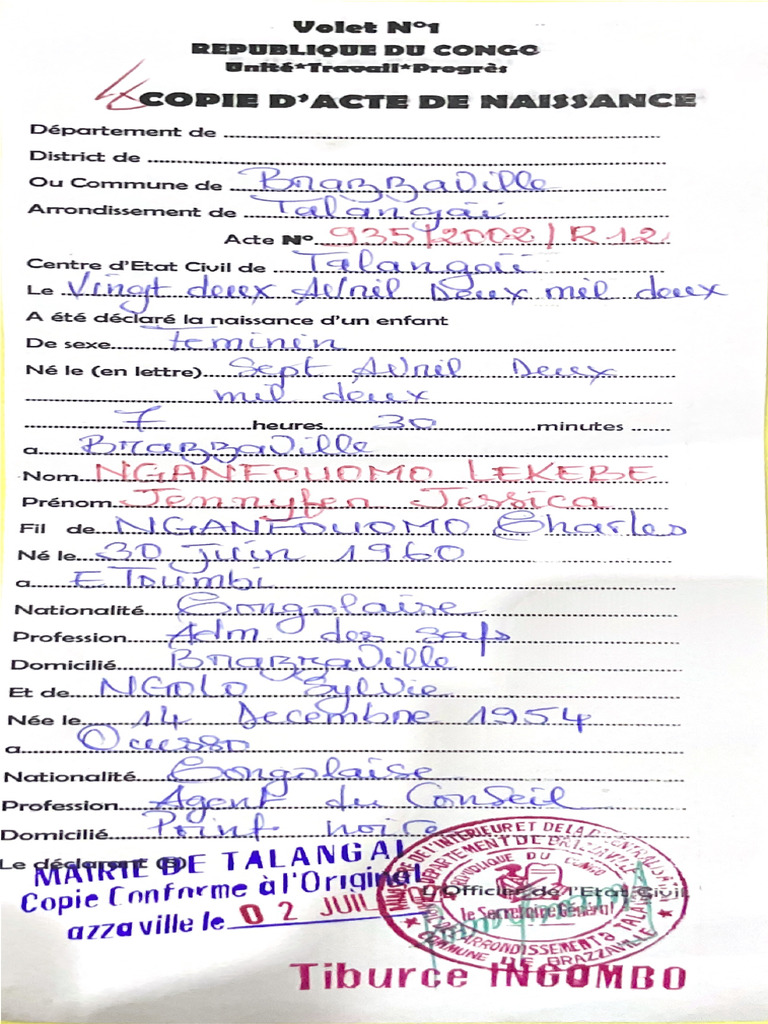 Volet N°1
REPUBLIQUE DU CONGO
Unité*Travail*Progrès
COPIE D'ACTE DE NAISSANCE
Département de
District de
Ou Commune de Brazzaville
Arrondissement de Talangaï
Acte N° 935/2002/R12
Centre d'Etat Civil de Talangaï
Le Vingt deux Avril Deux mil deux
A été déclaré la naissance d'un enfant
De sexe feminin
Né le (en lettre) Sept Avril Deux
mil deux
7 heures 30 minutes
a Brazzaville
Nom NGANFOUOMO LEKEBE
Prénom Jennyfer Jessica
Fil de NGANFOUOMO Charles
Né le 30 Juin 1960
a ETOUMBI
Nationalité Congolaise
Profession Adm des safs
Domicilié Brazzaville
Et de NGOLO Sylvie
Née le 14 Decembre 1954
a Ouesso
Nationalité Congolaise
Profession Agent du Conseil
Domicilié Point noire
Le déclarant
MAIRIE DE TALANGAI
Copie Conforme à l'Original
azzaville le 02 JUIL
L'Officier de l'Etat Civil
REPUBLIQUE DU CONGO
le Secrétaire Général
COMMUNE DE BRAZZAVILLE
Tiburce INGOMBO